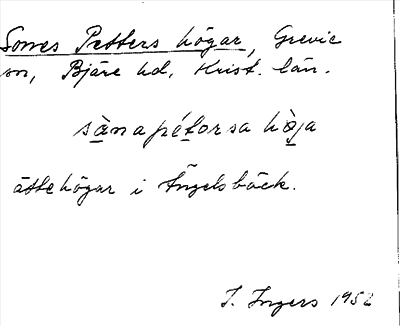 Sones Petters högar, Grevie
sn, Bjäre hd, Krist. län.
sànapétorsa hò̱ja
ättehögar i Ängelsbäck.
I. Ingers 1952